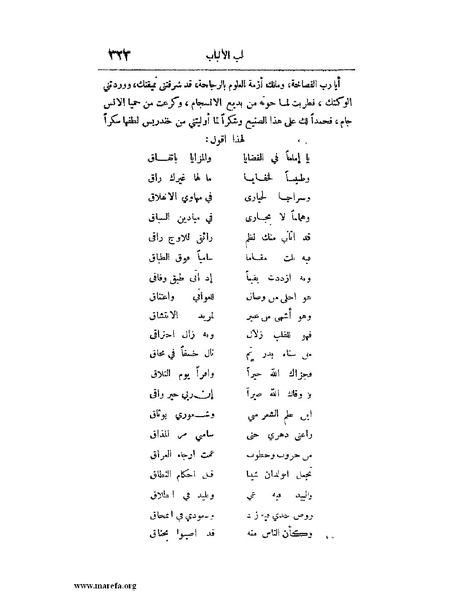 لب الألباب ٣٢٣
أيا رب الفصاحة، ومالك أزمة العلوم بالرجاحة، قد شرفتني نميقتك، ووردتني
الوكتك، فطربت لما حوته من بديع الانسجام، وكرعت من حميا الانس
جام، فحمداً لك على هذا الصنيع وشكراً لما أوليتني من خندريس لطفها سكراً
لهذا اقول:
يا إماماً في القضايا والمزايا باتفاق
وطبيباً لخفايا ما لها غيرك راق
وسراجا لحيارى في مهاوي الانغلاق
وهماماً لا يجارى في ميادين السباق
قد اتاني منك نظم رائق للاوج راقى
فيه نلت مقاما سامياً فوق الطباق
وبه ازددت يقيناً إذ اتى طبق وفاقي
هو احلى من وصال للغواني واعتناق
وهو أشهى من عبير لمزيد الانتشاق
فهو للقلب زلال وبه زال احتراقى
من سناه بدر تم نال خسفاً في محاق
فجزاك الله خيراً وافراً يوم التلاق
ووقاك الله ضيراً إن ربي خير واقى
اين علم الشعر مني وشعوري بوثاق
راعني دهري حتى سامني مر المذاق
من حروب وخطوب عمت ارجاء العراق
تجعل الولدان شيبا قبل احكام النطاق
في
وكأن الناس منه قد اصيبوا بخناق
www.marefa.org